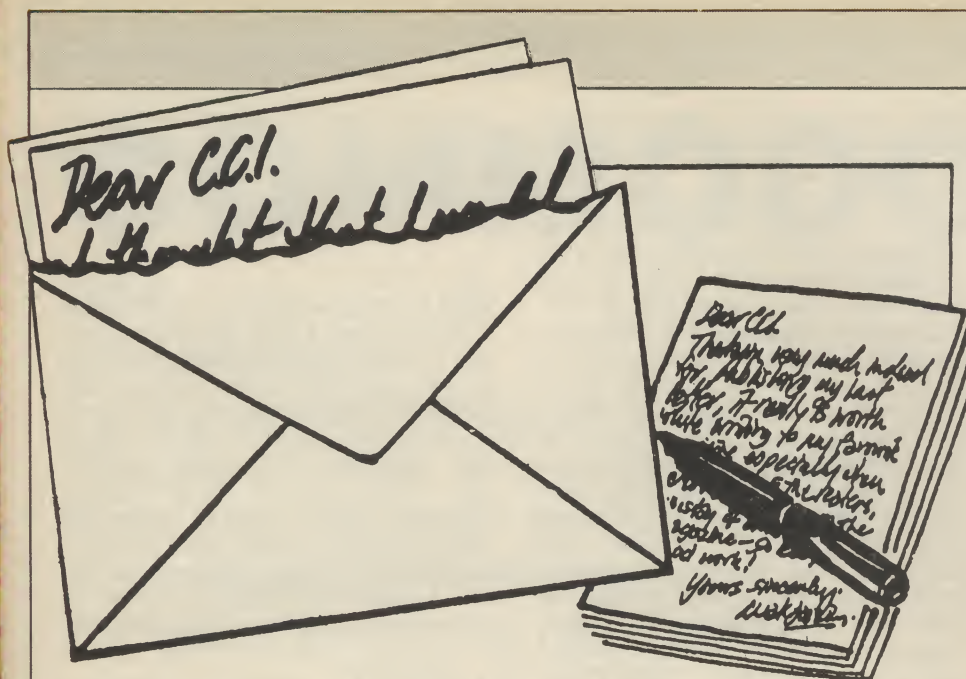 Dear C.C.I.
I thought that I would
Dear CCI.
Thankyou very much indeed
for publishing my last
letter, it really is worth
while writing to my favorite
especially when
the
work!
Yours sincerely,